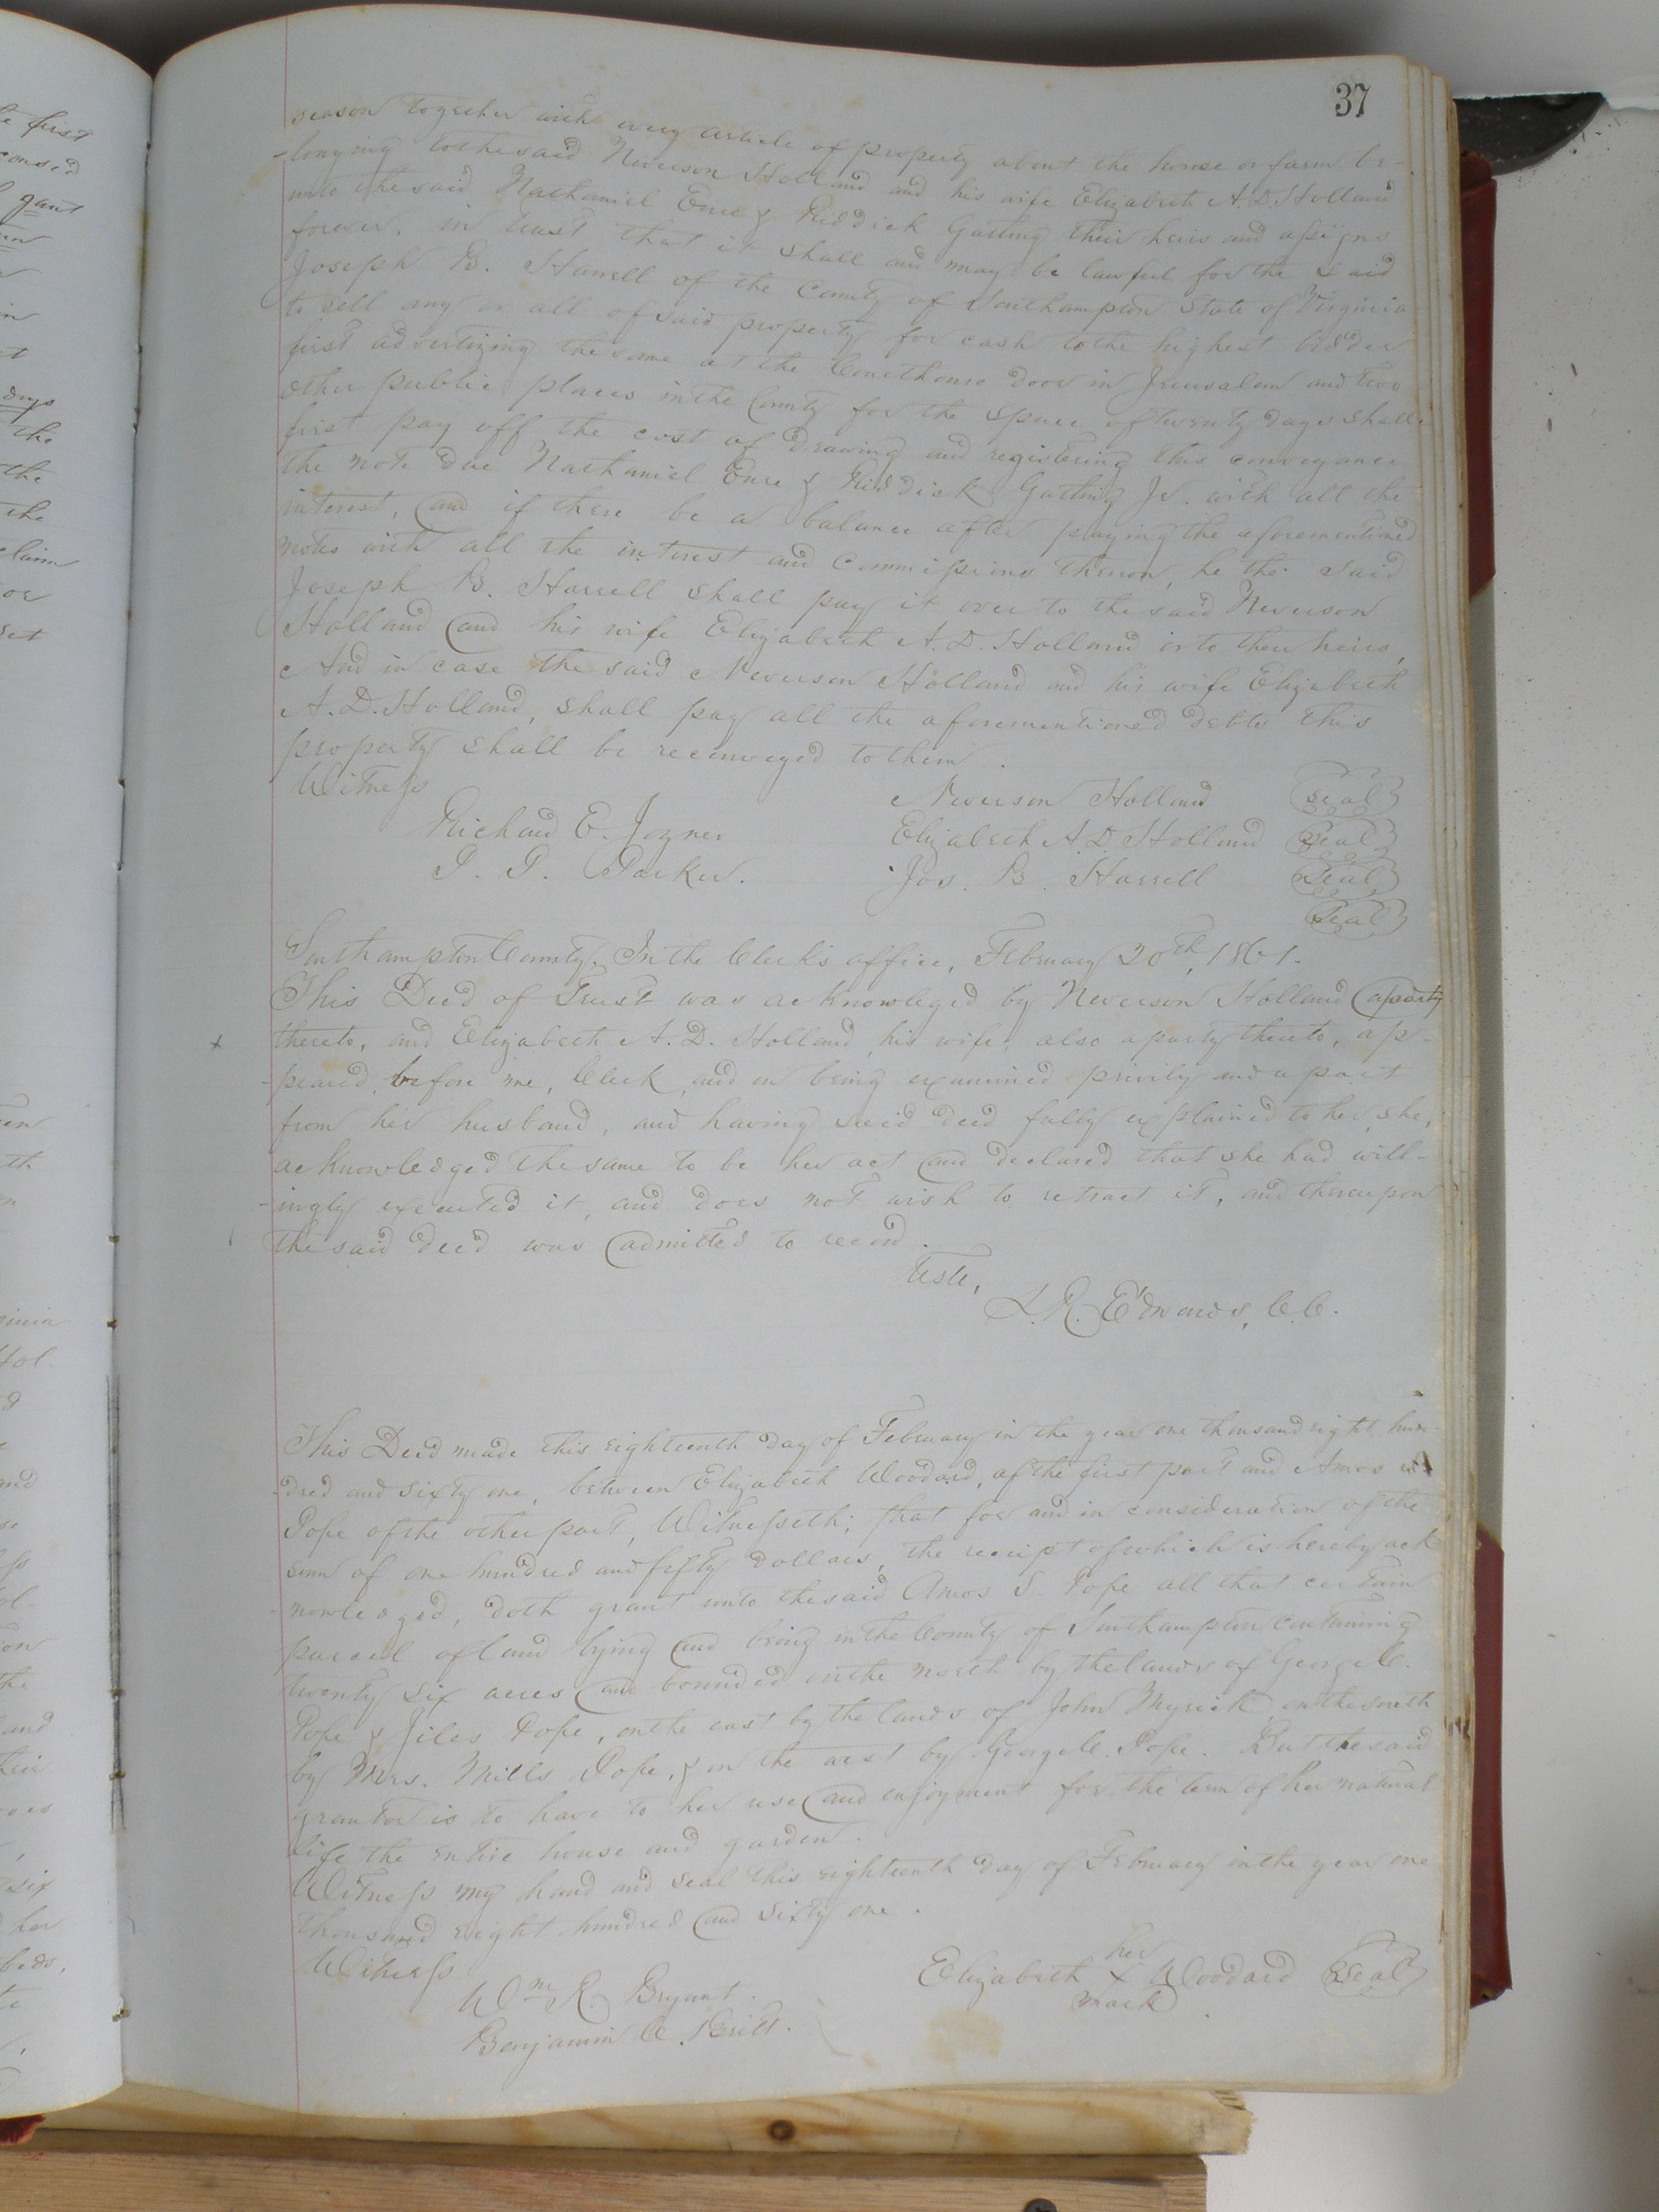 37
season together with every article of property about the house or farm be-
-longing to the said Neverson Holland and his wife Elizabeth A. D. Holland
unto the said Nathaniel Eure & Riddick Gatling their heirs and assigns
forever, in trust that it shall and may be lawful for the said
Joseph B. Harrell of the County of Southampton State of Virginia
to sell any or all of said property for cash to the highest bidder
first advertizing the same at the Courthouse door in Jerusalem and two
other public places in the County for the space of twenty days shall
first pay off the cost of drawing and registering this conveyance
the note due Nathaniel Eure & Riddick Gatling Jr. with all the
interest, and if there be a balance after paying the aforementioned
notes with all the interest and commissions thereon, he the said
Joseph B. Harrell shall pay it over to the said Neverson
Holland and his wife Elizabeth A. D. Holland or to their heirs,
And in case the said Neverson Holland and his wife Elizabeth
A. D. Holland, shall pay all the aforementioned debts this
property shall be reconveyed to them.
Witness
Neverson Holland Seal
Richard E. Joyner
Elizabeth A. D. Holland Seal
P. P. Parker.
Jos. B. Harrell Seal
Seal
Southampton County. In the Clerk's office, February 20th, 1861.
This Deed of Trust was acknowleged by Neverson Holland a party
thereto, and Elizabeth A. D. Holland, his wife, also a party thereto, ap-
-peared before me, Clerk, and on being examined privily and apart
from her husband, and having said deed fully explained to her, she,
acknowledged the same to be her act and declared that she had will-
-ingly executed it, and does not wish to retract it, and thereupon
the said deed was admitted to record.
Teste,
L. R. Edwards, C. C.
This Deed made this eighteenth day of February in the year one thousand eight hun-
-dred and sixty one, between Elizabeth Woodard, of the first part and Amos
Pope of the other part, Witnesseth; that for and in consideration of the
sum of one hundred and fifty dollars, the receipt of which is hereby ack
nowledged, doth grant unto the said Amos S. Pope all that certain
parcel of land lying and being in the County of Southampton containing
twenty six acres and bounded on the north by the lands of George C.
Pope & Jiles Pope, on the east by the lands of John Myrick, on the south
by Mrs. Mills Pope, & on the west by George C. Pope. But the said
grantor is to have to her use and enjoyment for the term of her natural
life the entire house and garden.
Witness my hand and seal this eighteenth day of February in the year one
thousand eight hundred and sixty one.
Witness
her
Elizabeth X Woodard Seal
mark
Wm. R. Bryant.
Benjamin C. Britt.